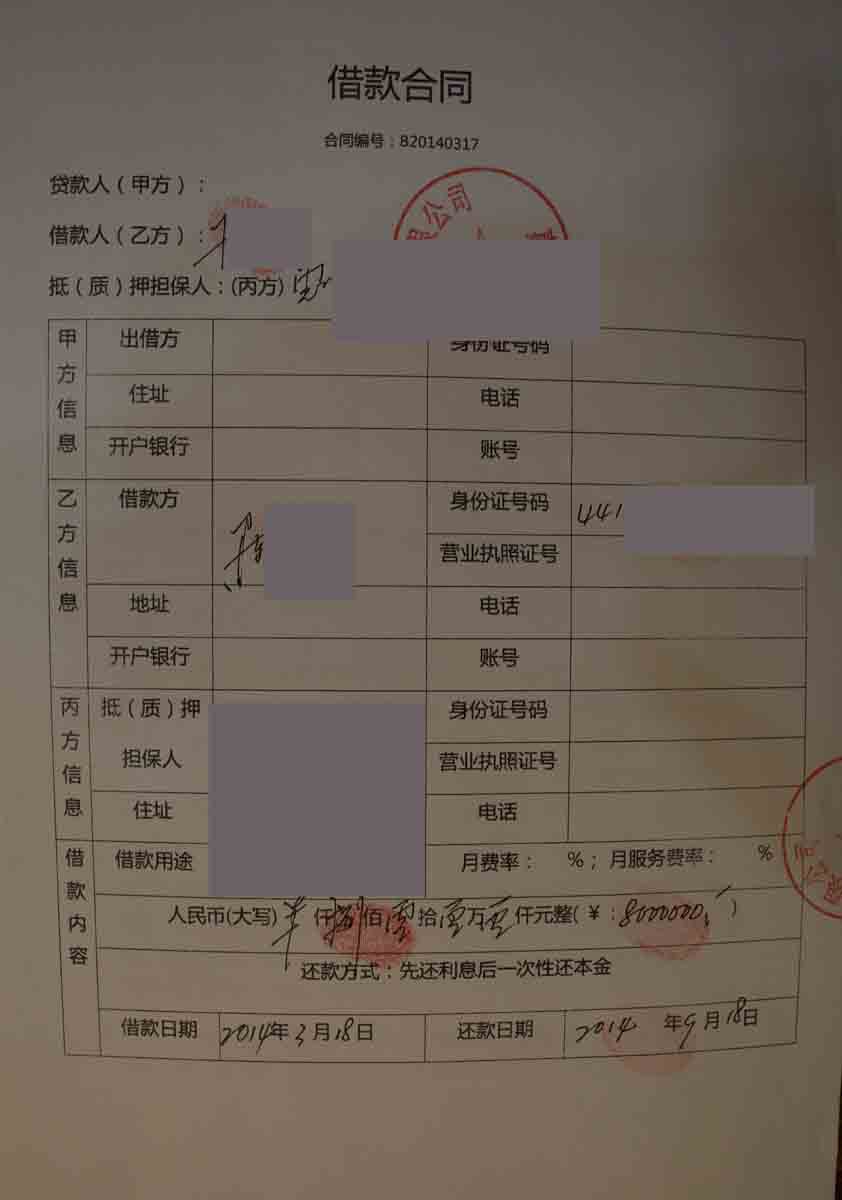 借款合同
合同编号：820140317
贷款人（甲方）：
限公司
借款人（乙方）：
抵（质）押担保人：(丙方)
甲方信息
出借方
身份证号码
住址
电话
开户银行
账号
乙方信息
借款方
身份证号码
441
营业执照证号
地址
电话
开户银行
账号
丙方信息
抵（质）押担保人
身份证号码
营业执照证号
住址
电话
借款内容
借款用途
月费率： %；月服务费率： %
人民币(大写) 仟捌佰零拾零万零仟元整(￥:8000000.)
还款方式：先还利息后一次性还本金
借款日期
2014年3月18日
还款日期
2014 年9月18日